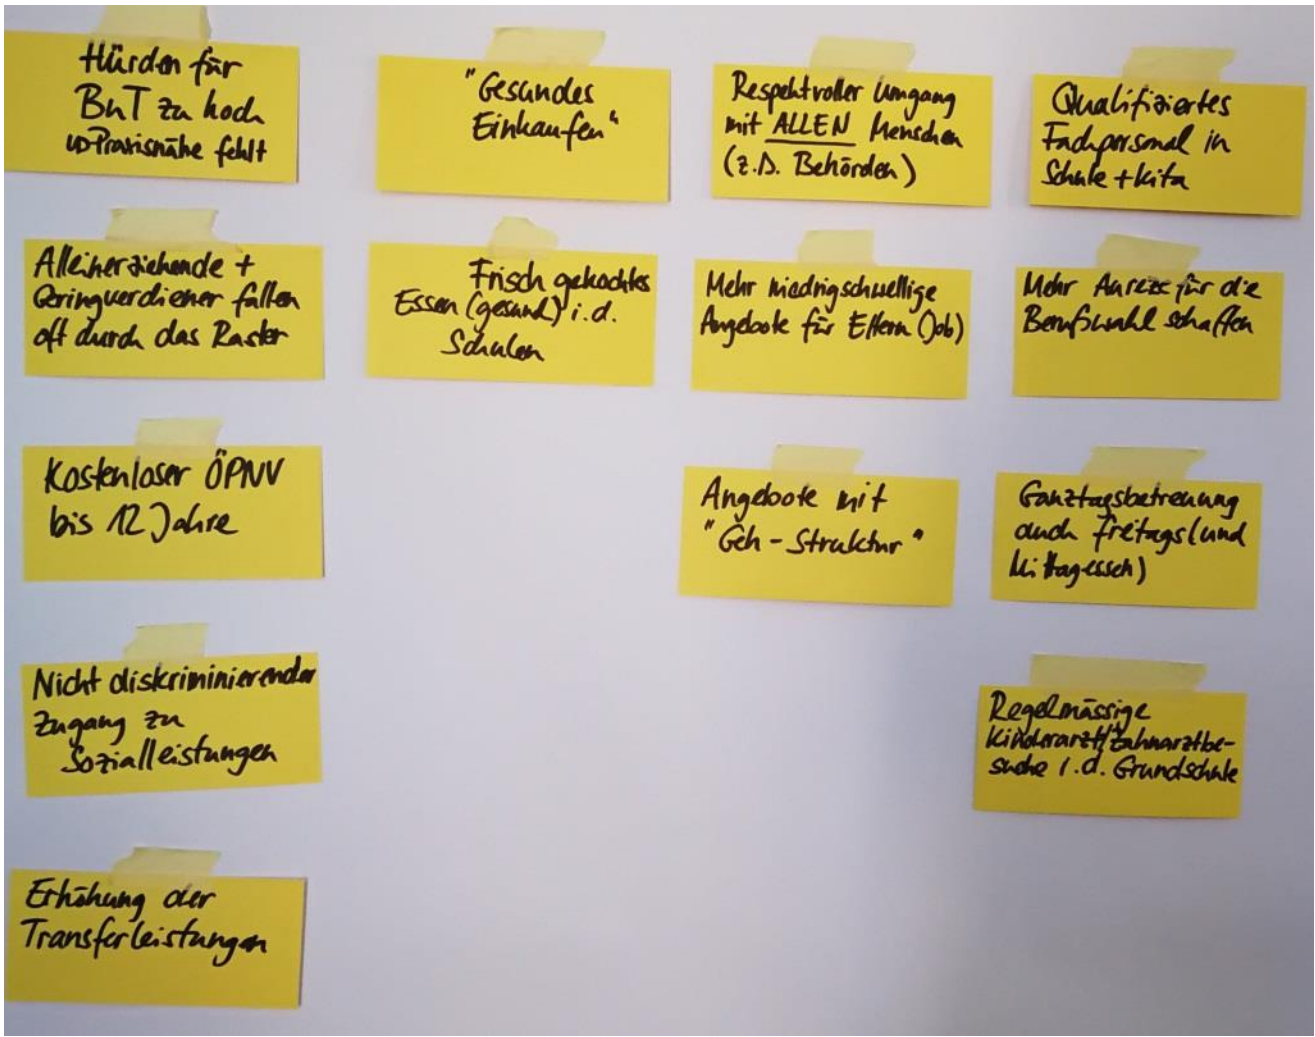 Hürden für
BuT zu hoch
↳ Praxisnähe fehlt
Alleinerziehende +
Geringverdiener fallen
oft durch das Raster
Kostenloser ÖPNV
bis 12 Jahre
Nicht diskriminierender
Zugang zu
Sozialleistungen
Erhöhung der
Transferleistungen
"Gesundes
Einkaufen"
Frisch gekochtes
Essen (gesund) i.d.
Schulen
Respektvoller Umgang
mit ALLEN Menschen
(z.B. Behörden)
Mehr niedrigschwellige
Angebote für Eltern (Job)
Angebote mit
"Geh-Struktur"
Qualifiziertes
Fachpersonal in
Schule + Kita
Mehr Anreize für die
Berufswahl schaffen
Ganztagsbetreuung
auch freitags (und
Mittagessen)
Regelmässige
Kinderarzt/Zahnarztbe-
suche i.d. Grundschule